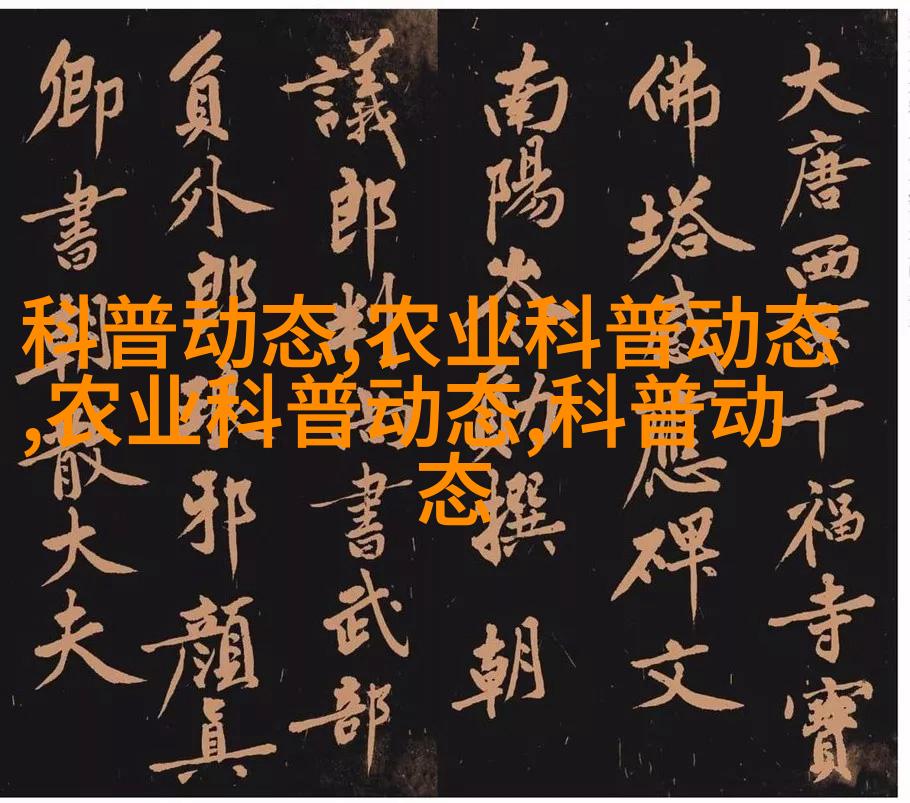 大唐西京千福寺寶
佛塔感應碑文
南陽岑勛撰 朝
議郎判尚書武部
貟外郎琅邪顏真
卿書朝散大夫
科普动态,农业科普动态
,农业科普动态,科普动
态